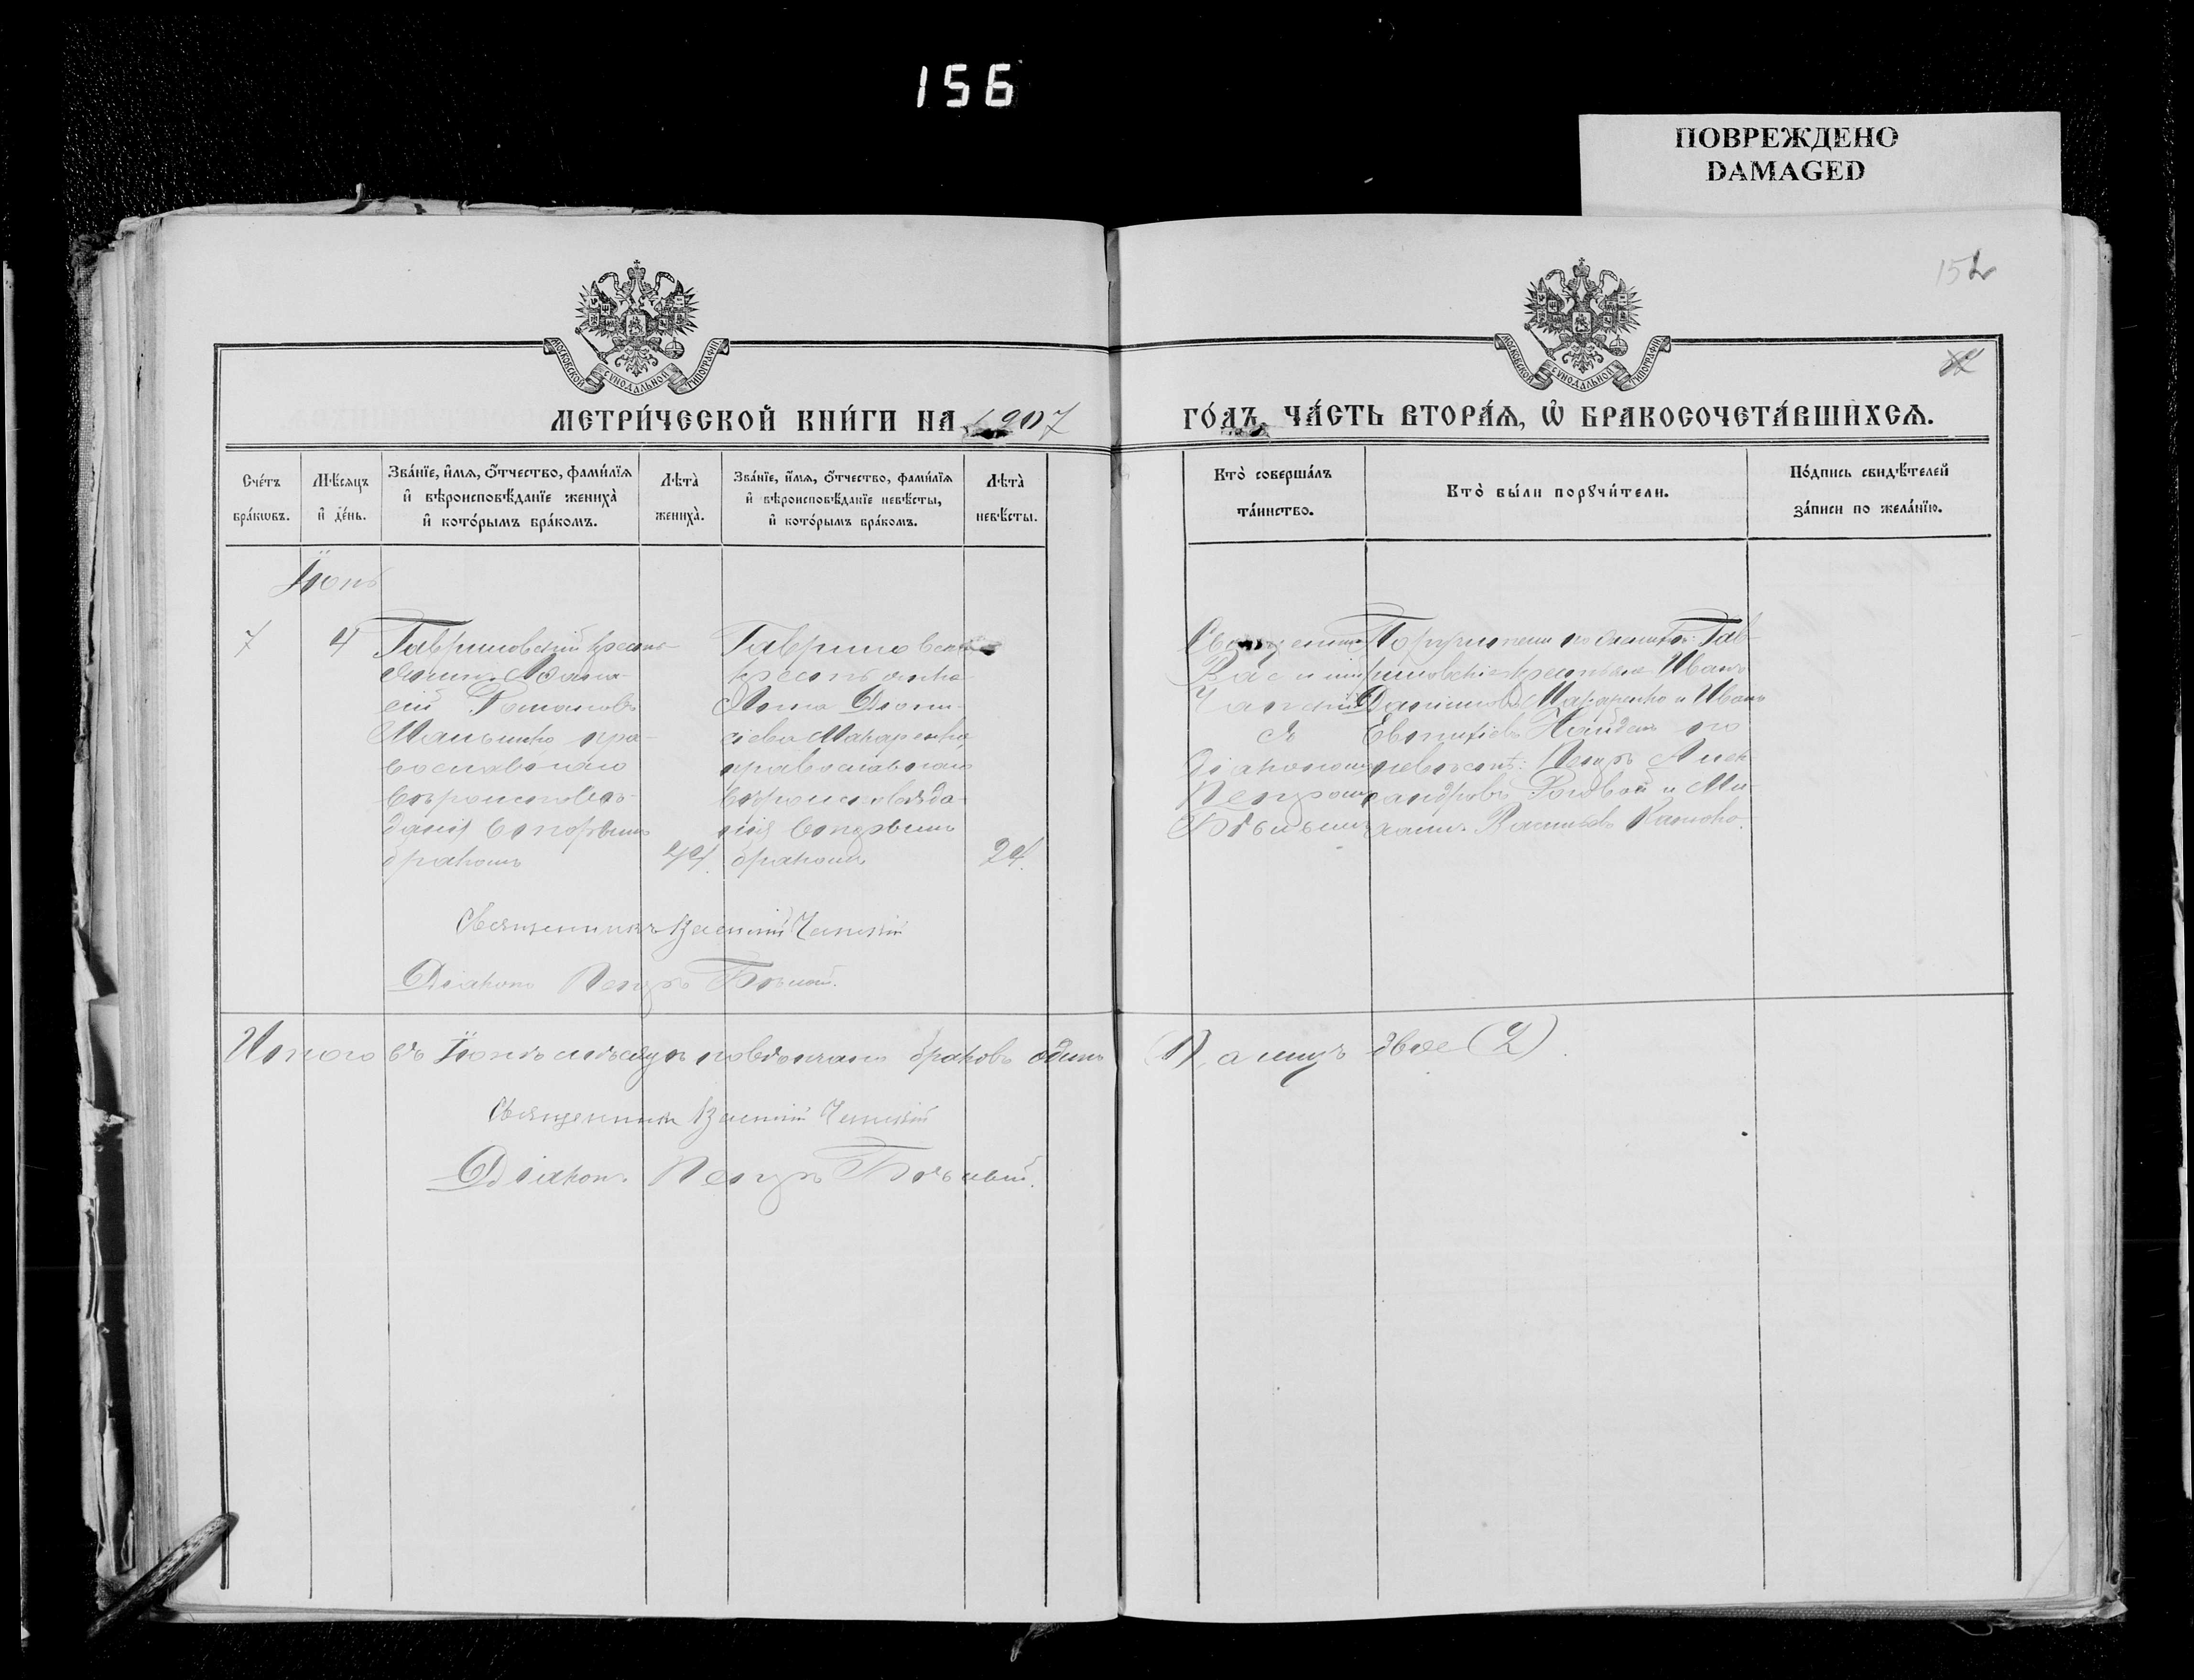 156
ПОВРЕЖДЕНО
DAMAGED
152
МОСКОВСКОЙ СУНОДАЛЬНОЙ ТИПОГРАФІИ
МОСКОВСКОЙ СУНОДАЛЬНОЙ ТИПОГРАФІИ
МЕТРИ́ЧЕСКОЙ КНИ́ГИ НА 1907
ГО́ДЪ, ЧА́СТЬ ВТОРА́Я, Ѡ҆ БРАКОСОЧЕТА́ВШИХСЯ.
Сче́тъ
бра́кѡвъ.
Мѣ́сяцъ
и҆ де́нь.
Зва́нїе, и҆́мя, ѻ҆́тчество, фами́лїя
и҆ вѣроисповѣ́данїе жениха̀
и҆ кото́рымъ бра́комъ.
Лѣта̀
жениха̀.
Зва́нїе, и҆́мя, ѻ҆́тчество, фами́лїя
и҆ вѣроисповѣ́данїе невѣ́сты,
и҆ кото́рымъ бра́комъ.
Лѣта̀
невѣ́сты.
Кто̀ соверша́лъ
та́инство.
Кто̀ бы́ли порꙋчи́тели.
По́дпись свидѣ́телей
за́писи по жела́нїю.
Іюнь
7
4
Гавриловскій кресть-
янинъ Афана-
сій Романовъ
пра-
вославнаго
вѣроисповѣ-
данія вторымъ
бракомъ
44.
Гавриловская
крестьянка
Анна Діони-
сіева Макаренко,
православнаго
вѣроисповѣда-
нія вторымъ
бракомъ
24.
Священникъ
Василій
Чапскій
съ
Діакономъ
Петромъ
Бѣлымъ
Поручители по женихѣ: Гав-
риловскіе крестьяне Иванъ
Даниловъ Макаренко и Иванъ
Евтихіевъ Найденъ по
невѣстѣ: Петръ Алек-
сандровъ Роговой и Ми-
хаилъ Васильевъ
Священникъ Василій Чапскій
Діаконъ Петръ Бѣлый.
Итого въ Іюнѣ мѣсяцѣ повѣнчано браковъ одинъ
а лицъ двое (2).
Священникъ Василій Чапскій
Діаконъ Петръ Бѣлый.